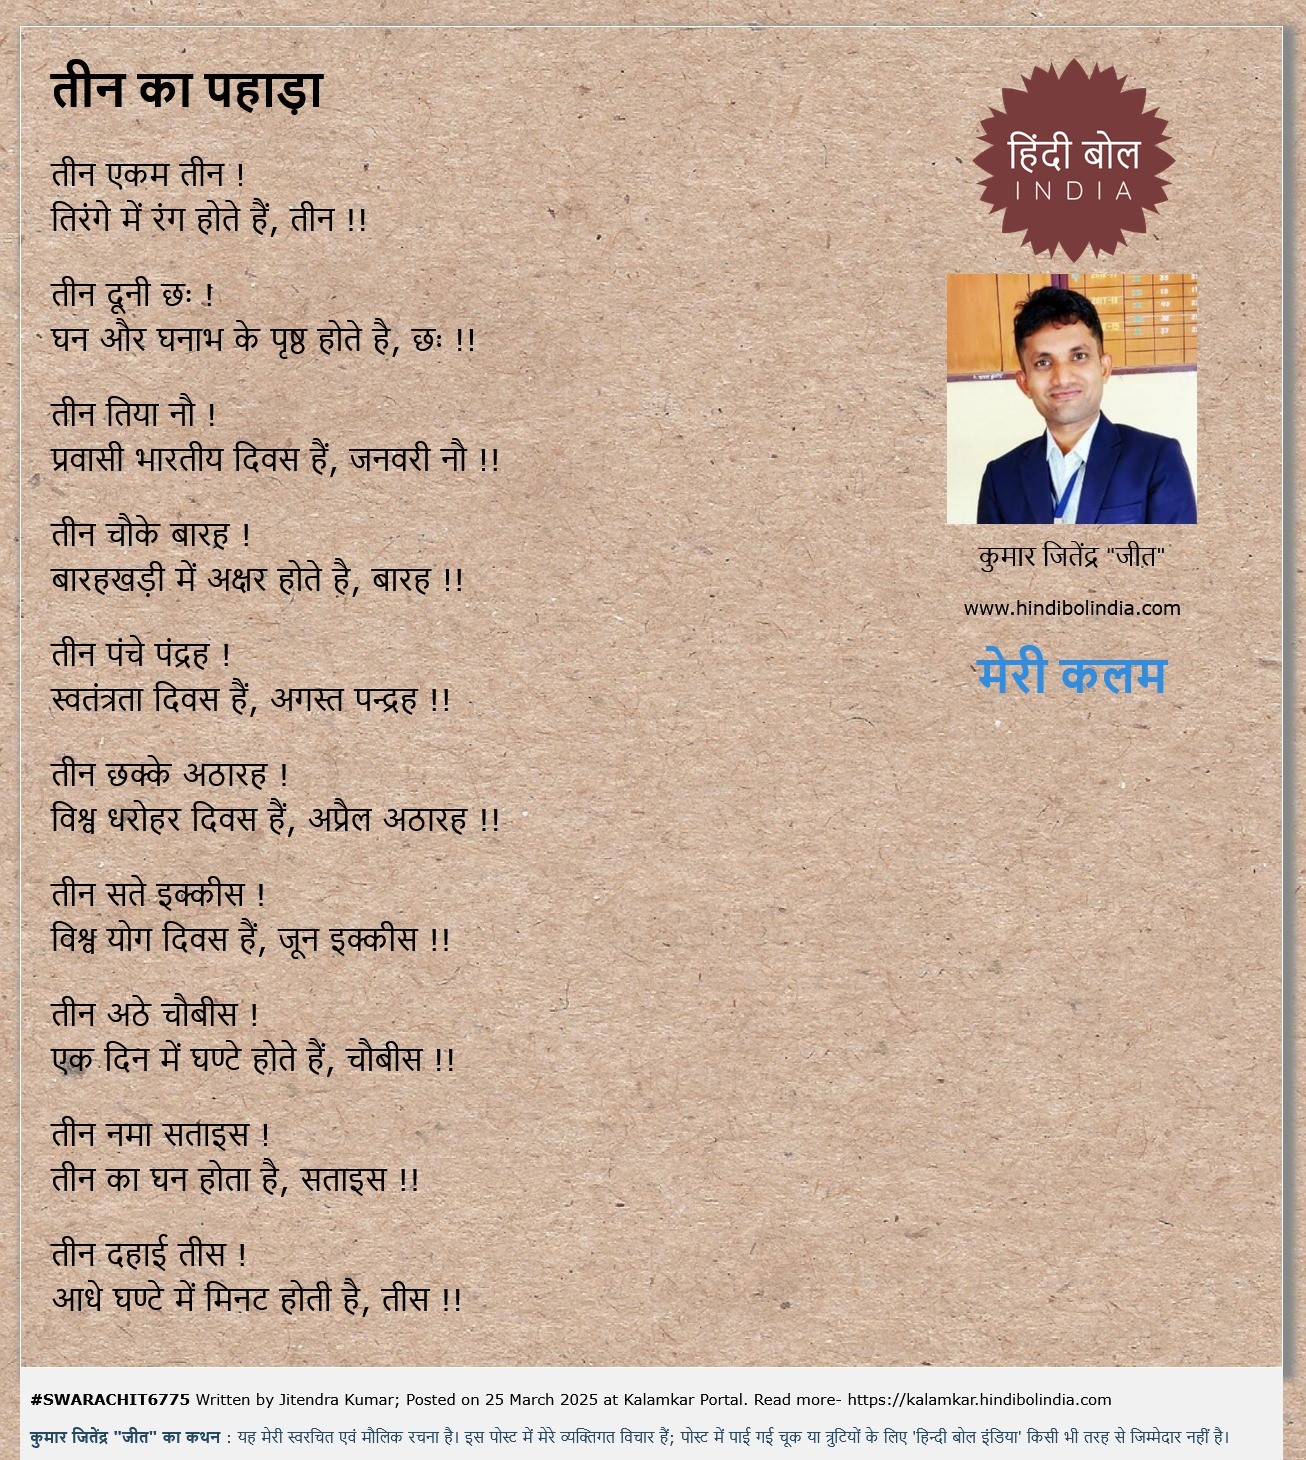 तीन का पहाड़ा
तीन एकम तीन !
तिरंगे में रंग होते हैं, तीन !!
तीन दूनी छः !
घन और घनाभ के पृष्ठ होते है, छः !!
तीन तिया नौ !
प्रवासी भारतीय दिवस हैं, जनवरी नौ !!
तीन चौके बारह !
बारहखड़ी में अक्षर होते है, बारह !!
तीन पंचे पंद्रह !
स्वतंत्रता दिवस हैं, अगस्त पन्द्रह !!
तीन छक्के अठारह !
विश्व धरोहर दिवस हैं, अप्रैल अठारह !!
तीन सते इक्कीस !
विश्व योग दिवस हैं, जून इक्कीस !!
तीन अठे चौबीस !
एक दिन में घण्टे होते हैं, चौबीस !!
तीन नमा सताइस !
तीन का घन होता है, सताइस !!
तीन दहाई तीस !
आधे घण्टे में मिनट होती है, तीस !!
हिंदी बोल
INDIA
कुमार जितेंद्र "जीत"
www.hindibolindia.com
मेरी कलम
#SWARACHIT6775 Written by Jitendra Kumar; Posted on 25 March 2025 at Kalamkar Portal. Read more- https://kalamkar.hindibolindia.com
कुमार जितेंद्र "जीत" का कथन : यह मेरी स्वरचित एवं मौलिक रचना है। इस पोस्ट में मेरे व्यक्तिगत विचार हैं; पोस्ट में पाई गई चूक या त्रुटियों के लिए 'हिन्दी बोल इंडिया' किसी भी तरह से जिम्मेदार नहीं है।